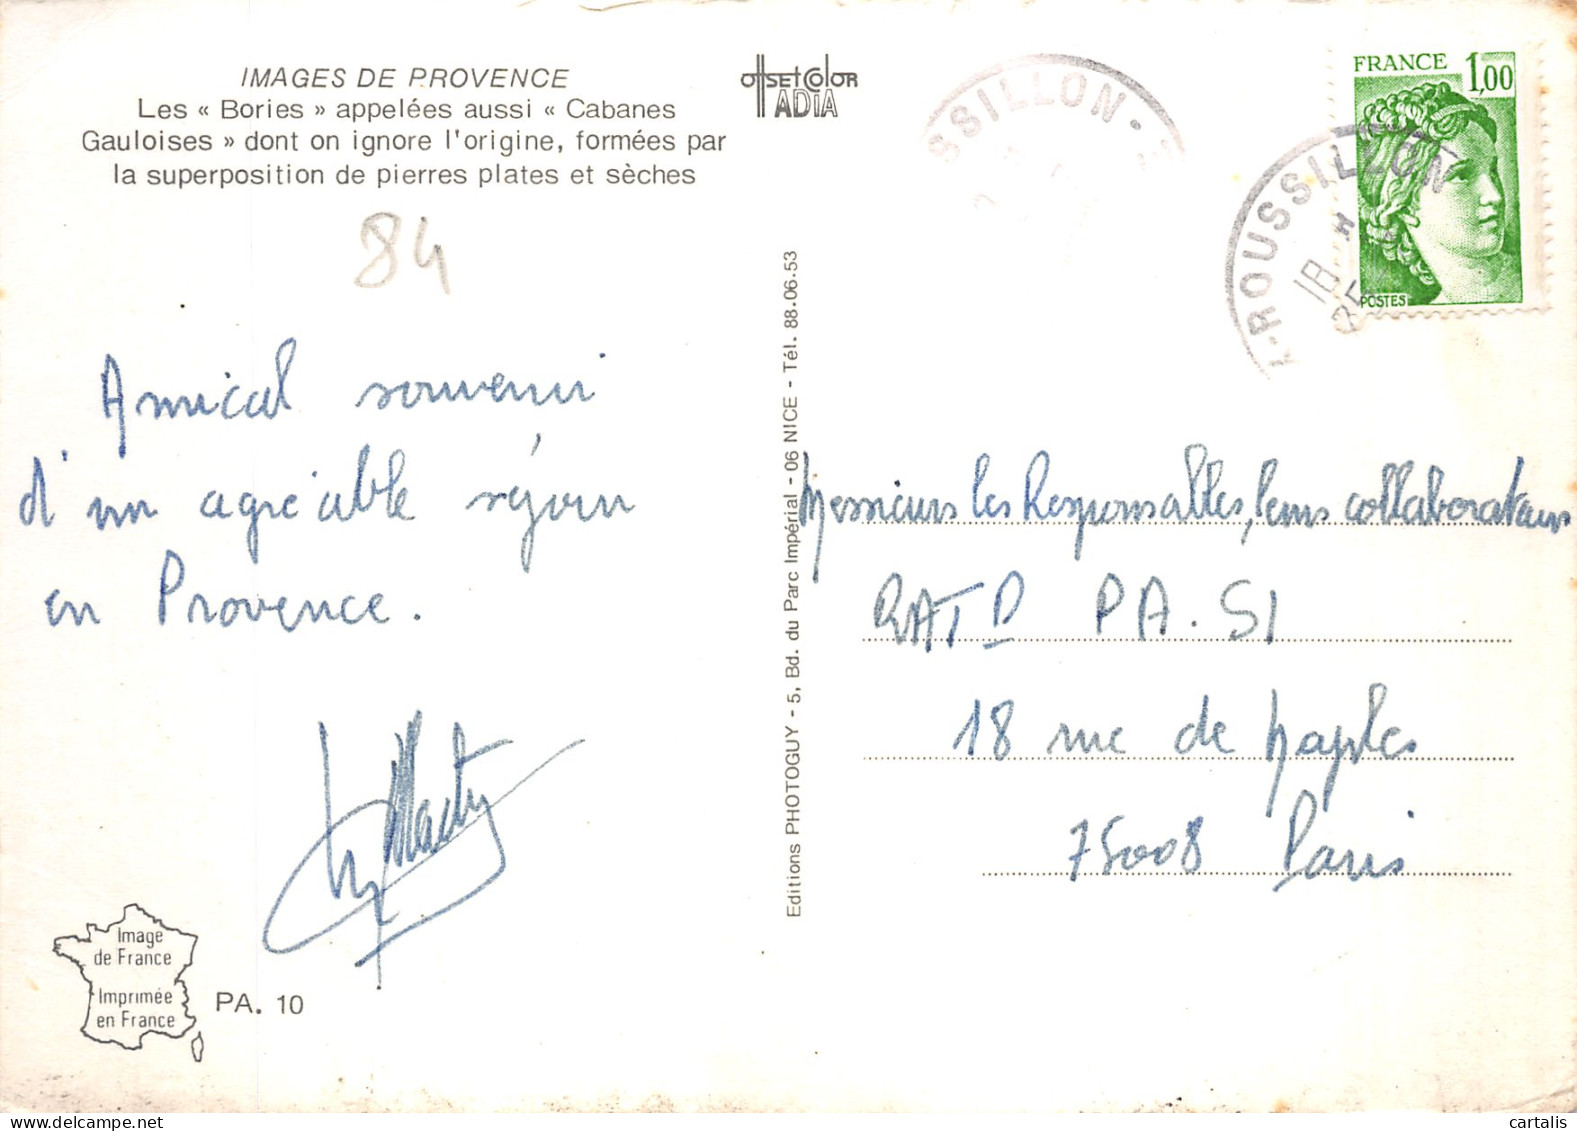 IMAGES DE PROVENCE
Les « Bories » appelées aussi « Cabanes
Gauloises » dont on ignore l'origine, formées par
la superposition de pierres plates et sèches
84
Amical souvenir
d'un agréable séjour
en Provence.
Image
de France
Imprimée
en France
PA. 10
OffsetColor
ADIA
Editions PHOTOGUY - 5, Bd. du Parc Impérial - 06 NICE - Tél. 88.06.53
SSILLON
FRANCE 1,00
POSTES
ROUSSILLON
18
25
Messieurs les Responsables, leurs collaborateurs
RATP PA. SI
18 rue de Naples
75008 Paris
cartalis